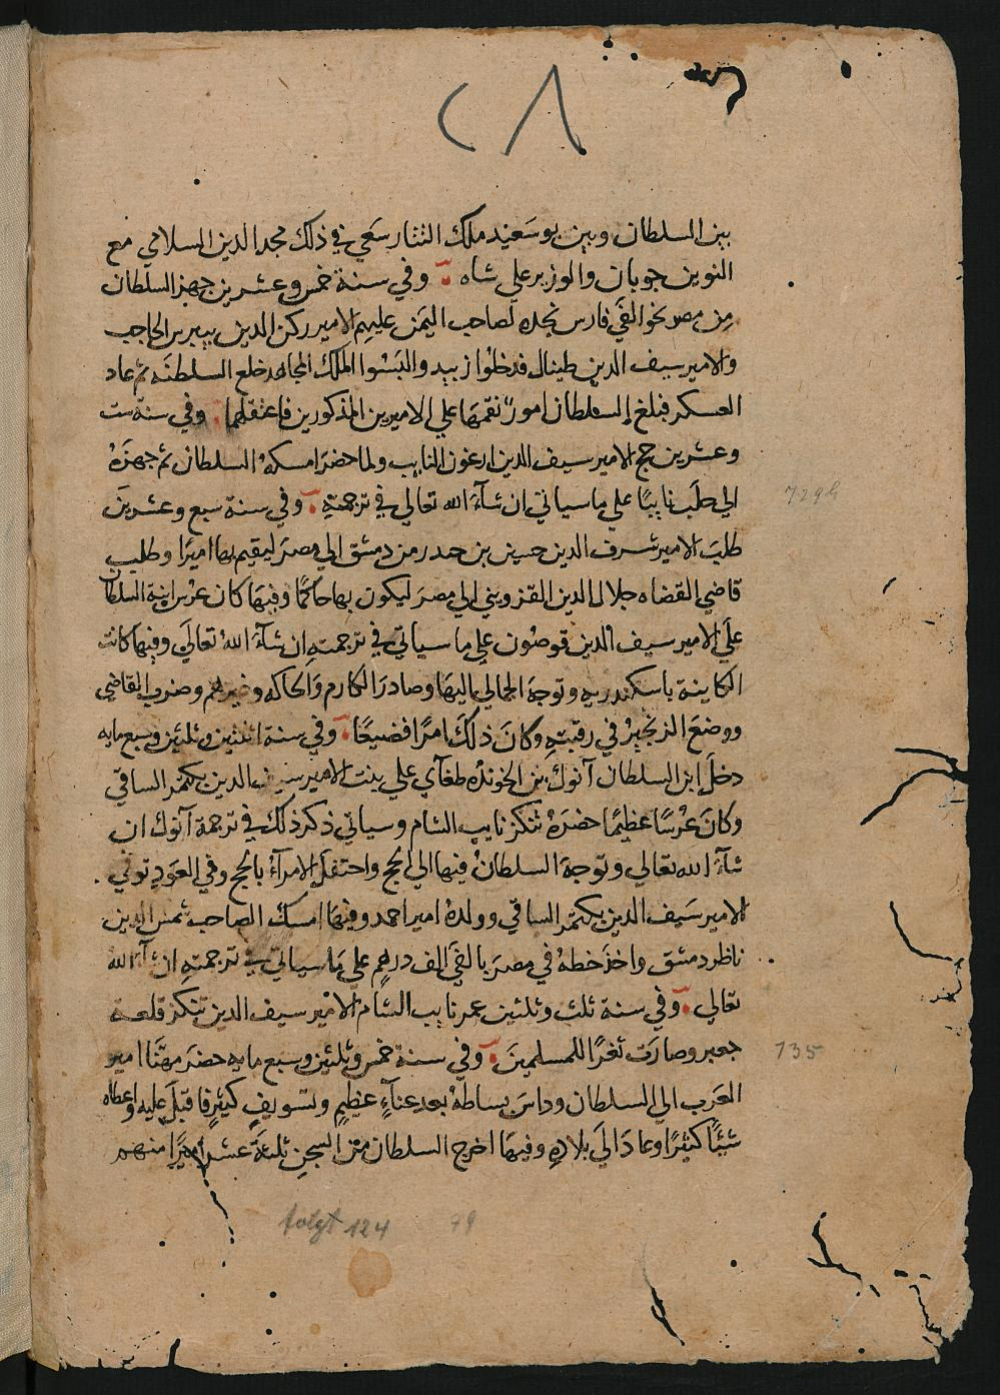 ٢٨
بين السلطان وبين بوسعيد ملك التتار سعي في ذلك مجد الدين السلامي مع
النوين جوبان والوزير علي شاه وفي سنة خمس وعشرين جهز السلطان
من مصر نحو الفي فارس نجده لصاحب اليمن عليهم الامير ركن الدين بيبرس الحاجب
والامير سيف الدين طينال فدخلوا زبيد والبسوا الملك المجاهد خلع السلطنه ثم عاد
العسكر فبلغ السلطان امور نقمها علي الاميرين المذكورين فاعتقلهما وفي سنة ست
وعشرين حج الامير سيف الدين ارغون النايب ولما حضر امسكه السلطان ثم جهزه
الي حلب نايبا علي ما سياتي ان شآء الله تعالي في ترجمته وفي سنة سبع وعشرين
طلب الامير شرف الدين حسين بن حندر من دمشق الي مصر ليقيم بها اميرا وطلب
قاضي القضاه جلال الدين القزويني الي مصر ليكون بها حاكما وفيها كان عرس ابنة السلطان
علي الامير سيف الدين قوصون علي ما سياتي في ترجمته ان شآء الله تعالي وفيها كانت
الكاينة باسكندريه وتوجه الجمالي اليها وصادر الكارم والحاكه وغيرهم وضرب القاضي
ووضع الزنجير في رقبته وكان ذلك امرا فضيحا وفي سنة اثنتين وثلثين وسبع مايه
دخل ابن السلطان آنوك بن الخونده طغآي علي بنت الامير سيف الدين بكتمر الساقي
وكان عرسا عظيما حضره تنكز نايب الشام وسياتي ذكر ذلك في ترجمة آنوك ان
شآء الله تعالي وتوجه السلطان فيها الي الحج واحتفل الامرآء بالحج وفي العود توفي
الامير سيف الدين بكتمر الساقي وولده امير احمد وفيها امسك الصاحب شمس الدين
ناظر دمشق واخذ خطه في مصر بالفي الف درهم علي ما سياتي في ترجمته ان شآء الله
تعالي وفي سنة ثلث وثلثين عمر نايب الشام الامير سيف الدين تنكز قلعة
جعبر وصارت ثغرا للمسلمين وفي سنة خمس وثلثين وسبع مايه حضر مهنا امير
العرب الي السلطان وداس بساطه بعد عناء عظيم وتسويف كثير فاقبل عليه واعطاه
شيئا كثيرا وعاد الي بلاده وفيها اخرج السلطان من السجن ثلثة عشر اميرا منهم
735
folgt 124 79